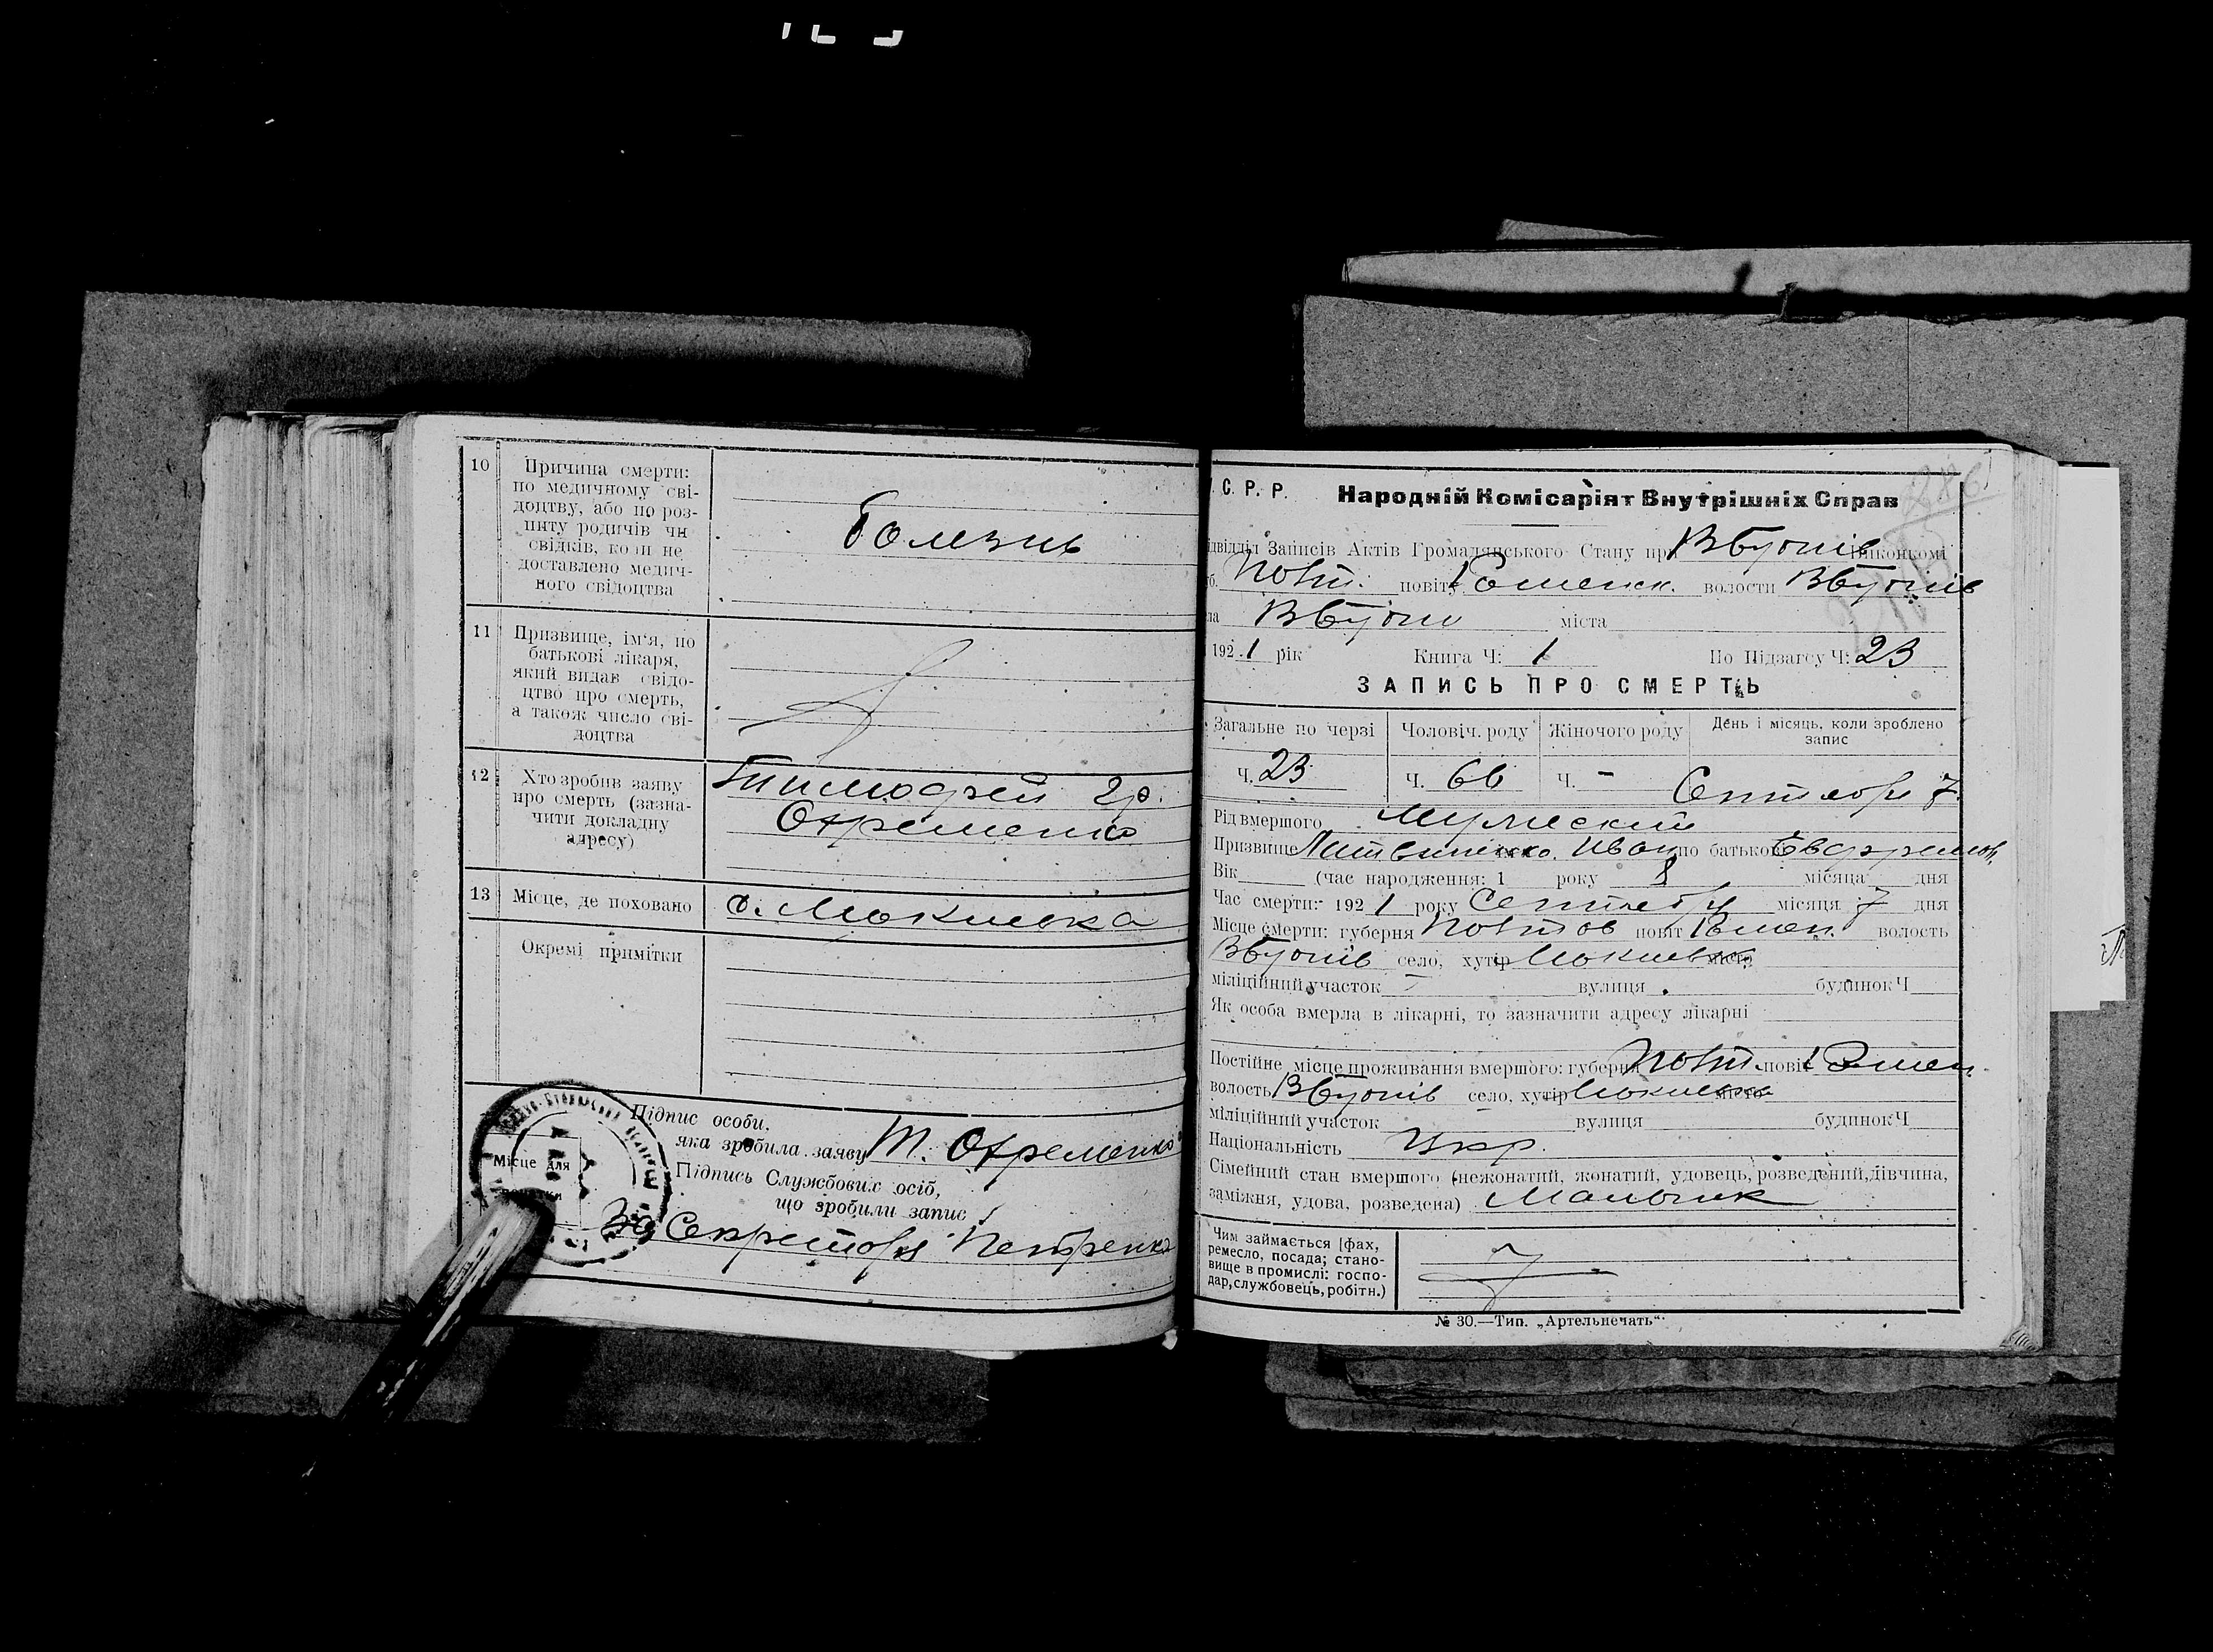 10 Причина смерти:
по медичному сві-
доцтву, або по роз-
питу родичів чи
свідків, коли не
доставлено медич-
ного свідоцтва
Болезнь
11 Призвище, ім'я, по
батькові лікаря,
який видав свідо-
цтво про смерть,
а також число сві-
доцтва
12 Хто зробив заяву
про смерть (зазна-
чити докладну
адресу)
гр.
Охременко
13 Місце, де поховано
с.
Окремі примітки
Підпис особи,
яка зробила заяву Т. Охременко
Місце для
Підпись Службових осіб,
що зробили запис
За Секретаря Петренко
С. Р. Р. Народній Комісаріят Внутрішніх Справ
ідвідділ Записів Актів Громадянського Стану при виконкомі
Полт. повіту Роменск. волости
міста
1921 рік Книга Ч: 1 По Підзагсу Ч: 23
ЗАПИСЬ ПРО СМЕРТЬ
Загальне по черзі Чоловіч. роду Жіночого роду День і місяць, коли зроблено
запис
Ч. 23 Ч. 66 Ч. - Сентября 7
Рід вмершого Мужеский
Призвище Литвиненко Иван по батькові Евфремов.
Вік (час народження: 1 року 8 місяца дня
Час смерти: 1921 року Сентября місяця 7 дня
Місце смерти: губерня Полтов повіт Ромен. волость
село, хутір місто
міліційний участок вулиця будинок Ч
Як особа вмерла в лікарні, то зазначити адресу лікарні
Постійне місце проживання вмершого: губерня Полт. повіт Ромен.
волость село, хутір місто
міліційний участок вулиця будинок Ч
Національність Укр.
Сімейний стан вмершого (нежонатий, жонатий, удовець, розведений, дівчина,
заміжня, удова, розведена) Мальчик
Чим займається [фах,
ремесло, посада; стано-
вище в промислі: госпо-
дар, службовець, робітн.)
№ 30.—Тип. „Артельпечать“